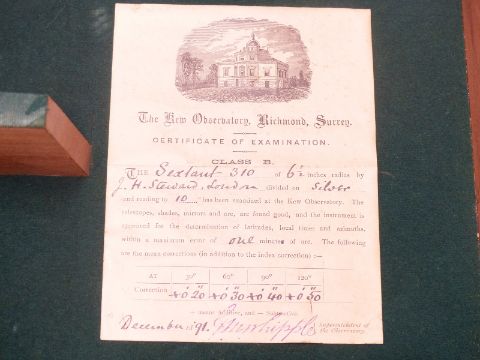 The Kew Observatory, Richmond, Surrey.
CERTIFICATE OF EXAMINATION.
CLASS B.
THE Sextant 310 of 6½ inches radius by
J. H. Steward, London divided on Silver
and reading to 10" has been examined at the Kew Observatory. The
telescopes, shades, mirrors and arc, are found good, and the instrument is
approved for the determination of latitudes, local times and azimuths,
within a maximum error of one minute of arc. The following
are the mean corrections (in addition to the index correction) :—
AT 30° 60° 90° 120°
Correction +0' 20" +0' 30" +0' 40" +0' 50"
+ means Additive, and — Subtractive.
December 1891. G M Whipple Superintendent of
the Observatory.